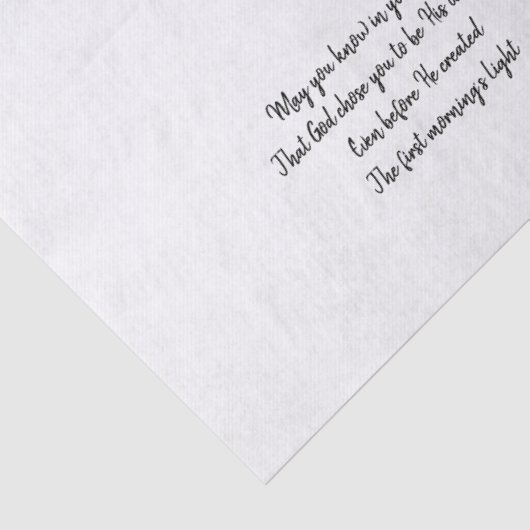 May you know in
That God chose you to be His
Even before He created
The first morning's light